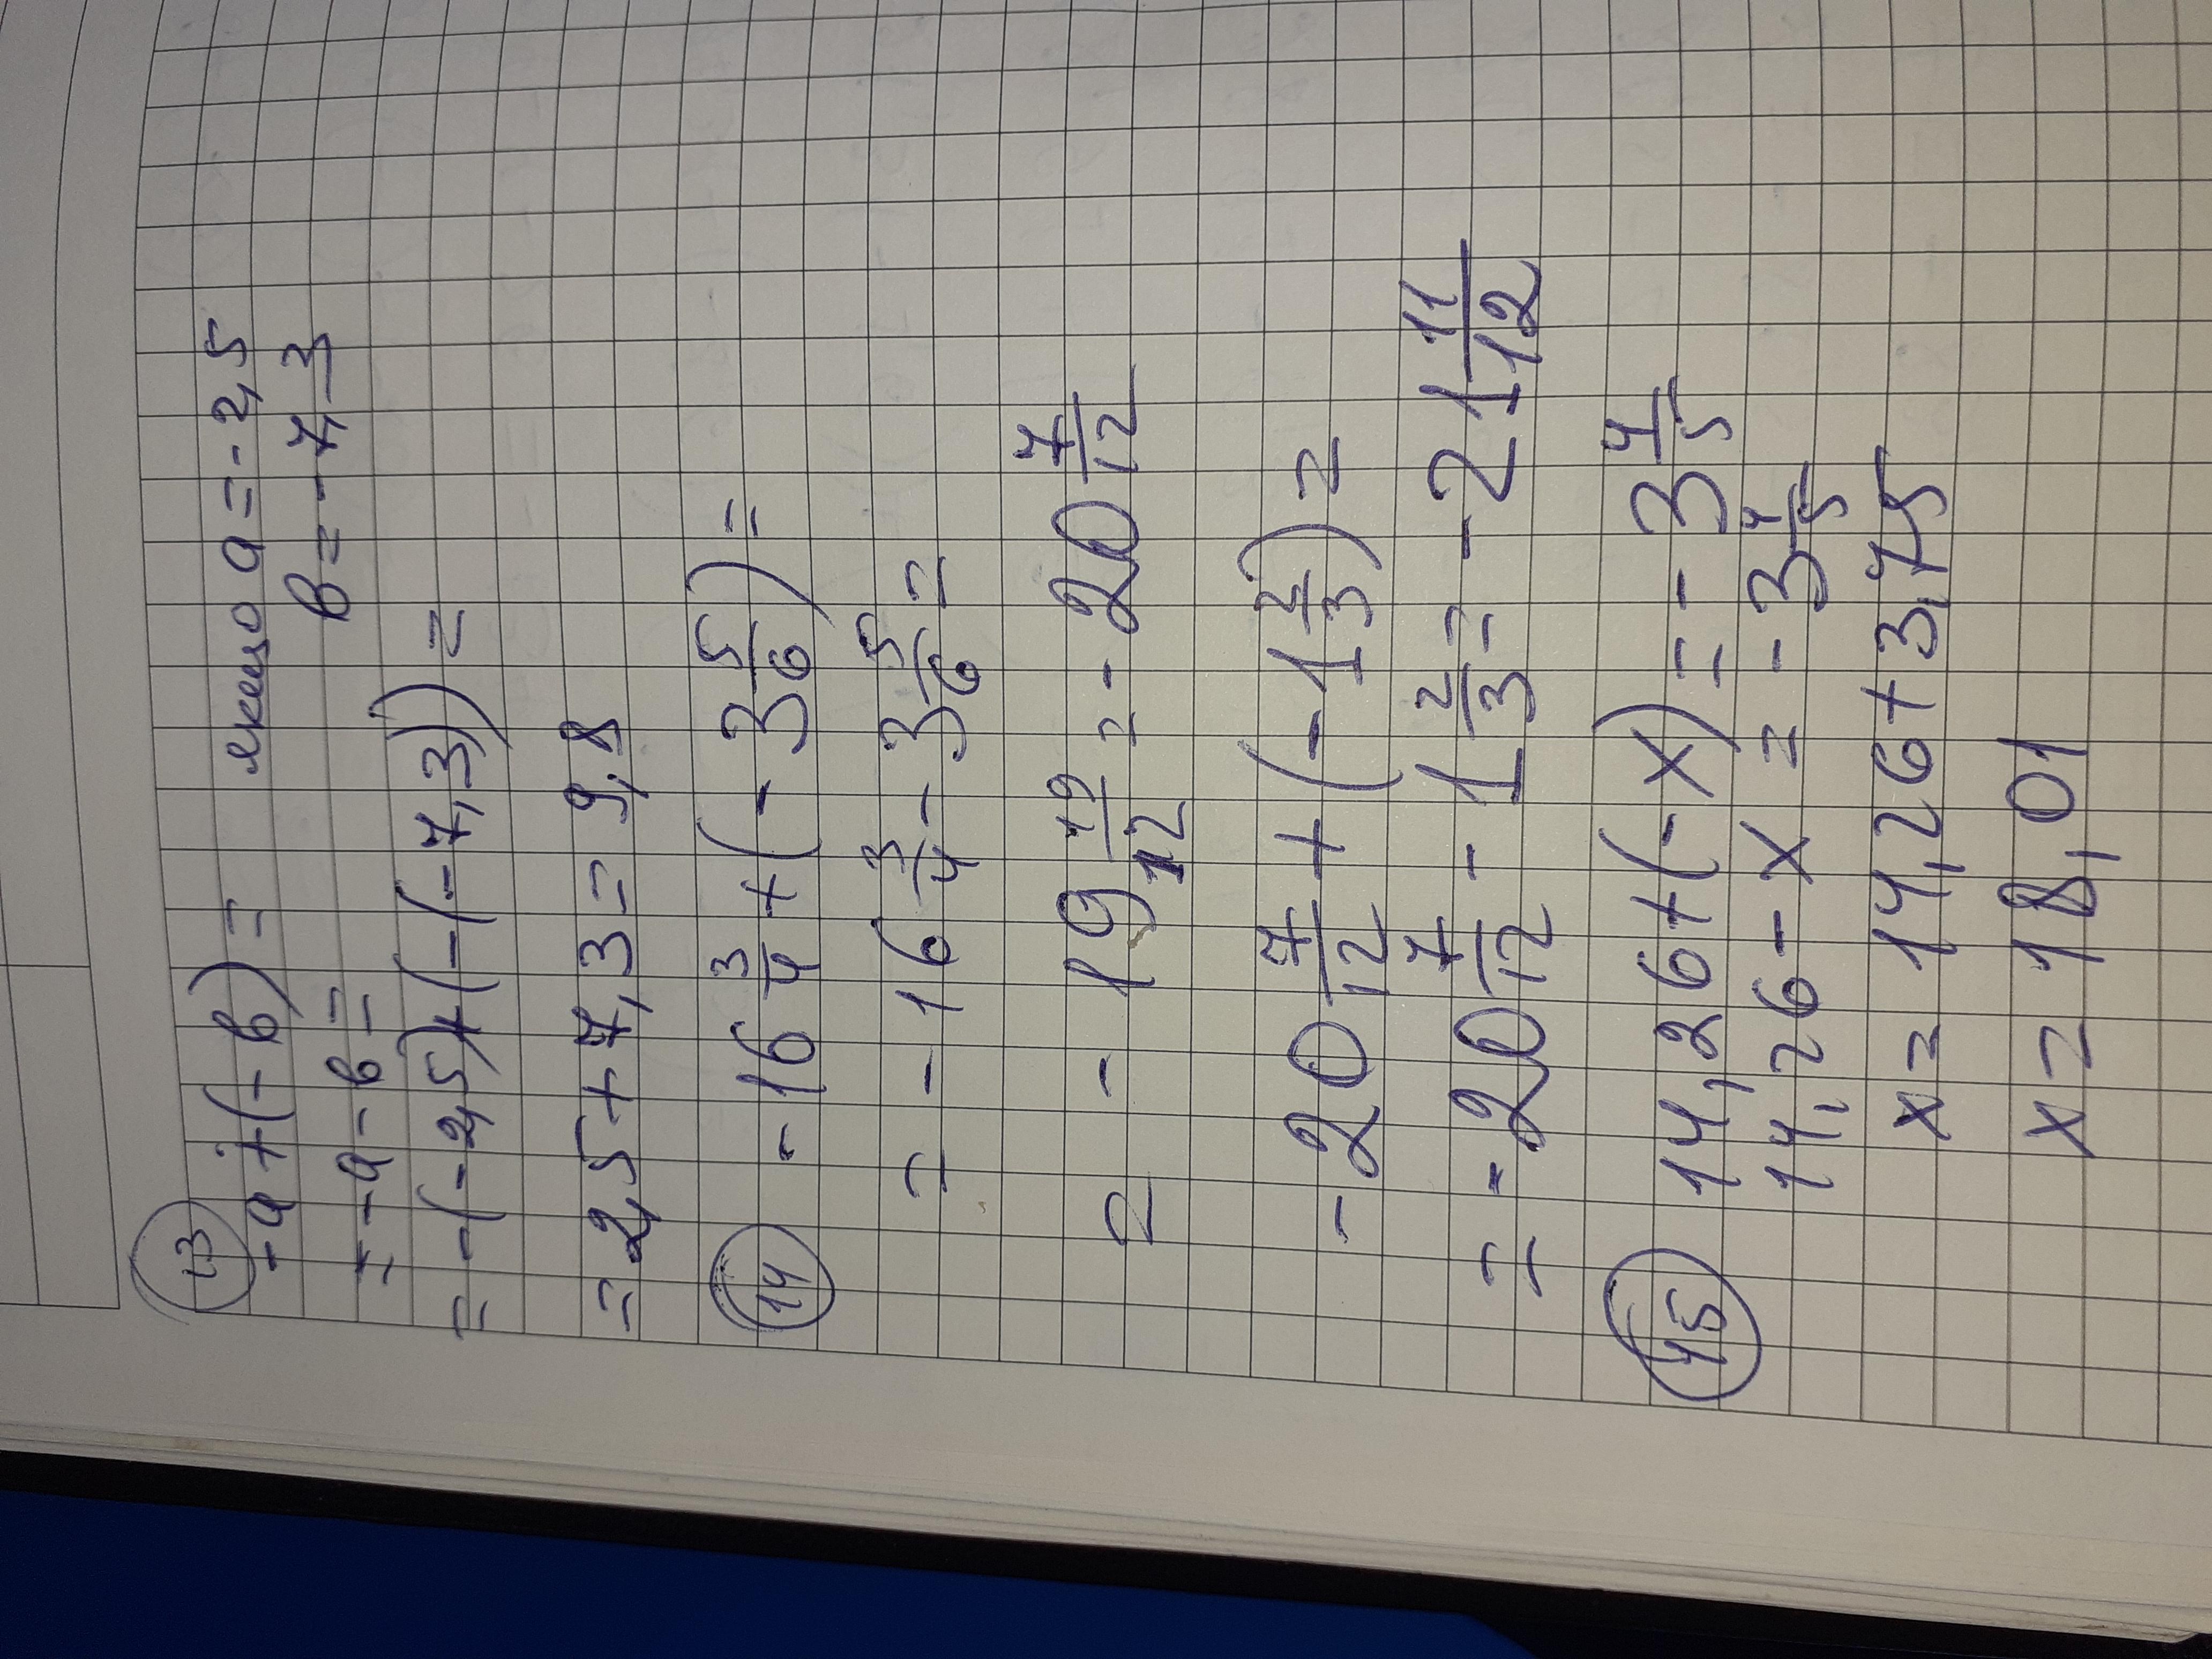 13
-a+(-b)= якщо a=-2,5
b=-7,3
=-a-b=
=-(-2,5)+(-(-7,3))=
=2,5+7,3=9,8
14 -16 3/4+(-3 5/6)=
=-16 3/4-3 5/6=
=-19 19/12=-20 7/12
-20 7/12+(-1 2/3)=
=-20 7/12-1 2/3=-21 11/12
15 14,26+(-x)=-3 4/5
14,26-x=-3 4/5
x=14,26+3,75
x=18,01